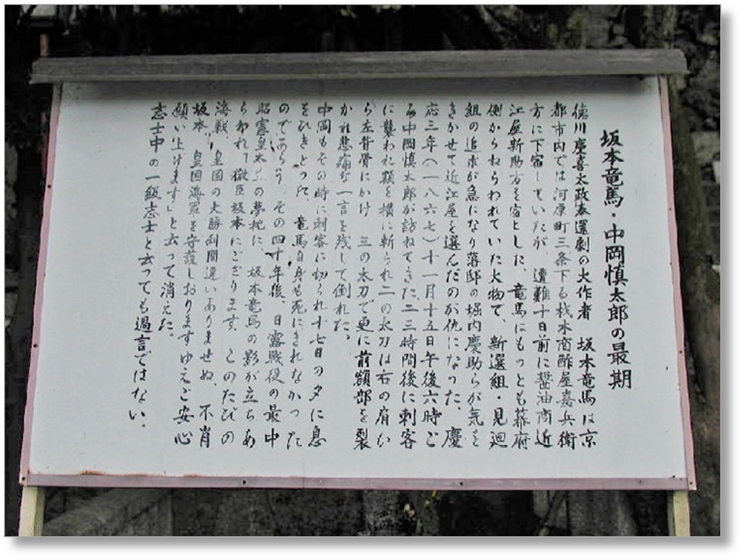 坂本竜馬・中岡慎太郎の最期
徳川慶喜大政奉還劇の大作者 坂本竜馬は京
都市内では河原町三条下る材木商酢屋嘉兵衛
方に下宿していたが 遭難十日前に醤油商近
江屋新助方を宿とした、竜馬にもっとも幕府
側からねらわれていた大物で 新選組・見廻
組の追求が急になり藩邸の堀内慶助らが気を
きかせて近江屋を選んだのが仇になった、慶
応三年(一八六七)十一月十五日午後六時ご
ろ中岡慎太郎が訪ねてきた、二三時間後に刺客
に襲われ額を横に斬られ二の太刀は右の肩か
ら左背骨にかけ 三の太刀で更に前額部を裂
かれ悲痛な一言を残して倒れた。
中岡もその時に刺客に切られ十七日の夕に息
をひきとった 竜馬自身も死にきれなかった
のであろう、その四十年後、日露戦役の最中
昭憲皇太 の夢枕に 坂本竜馬の影が立ちあ
らわれて微臣坂本にござります、このたびの
海戦 皇国の大勝利間違いありませぬ、不肖
坂本 皇国海軍を守護しおりますゆえご安心
願い上げます」と云って消えた。
志士中の一級志士と云っても過言ではない。